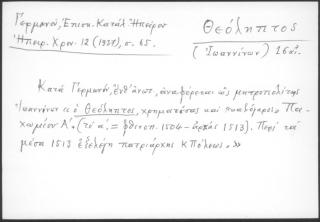 Γερμανού, Ἐπισκ. Κατάλ. Ἠπείρου
Ἠπειρ. Χρον. 12 (1937), σ. 65.
Θεόληπτος
(Ἰωαννίνων) 16 αἰ.
Κατὰ Γερμανόν, ἔνθ' ἀνωτ., ἀναφέρεται ὡς μητροπολίτης
Ἰωαννίνων ὁ Θεόληπτος, χρηματίσας καὶ Πα-
χωμίου Α΄. (τὸ α΄, = φθινοπ. 1504 – ἀρχὰς 1513). Περὶ τὰ
μέσα 1513 ἐξελέγη πατριάρχης Κπόλεως. »